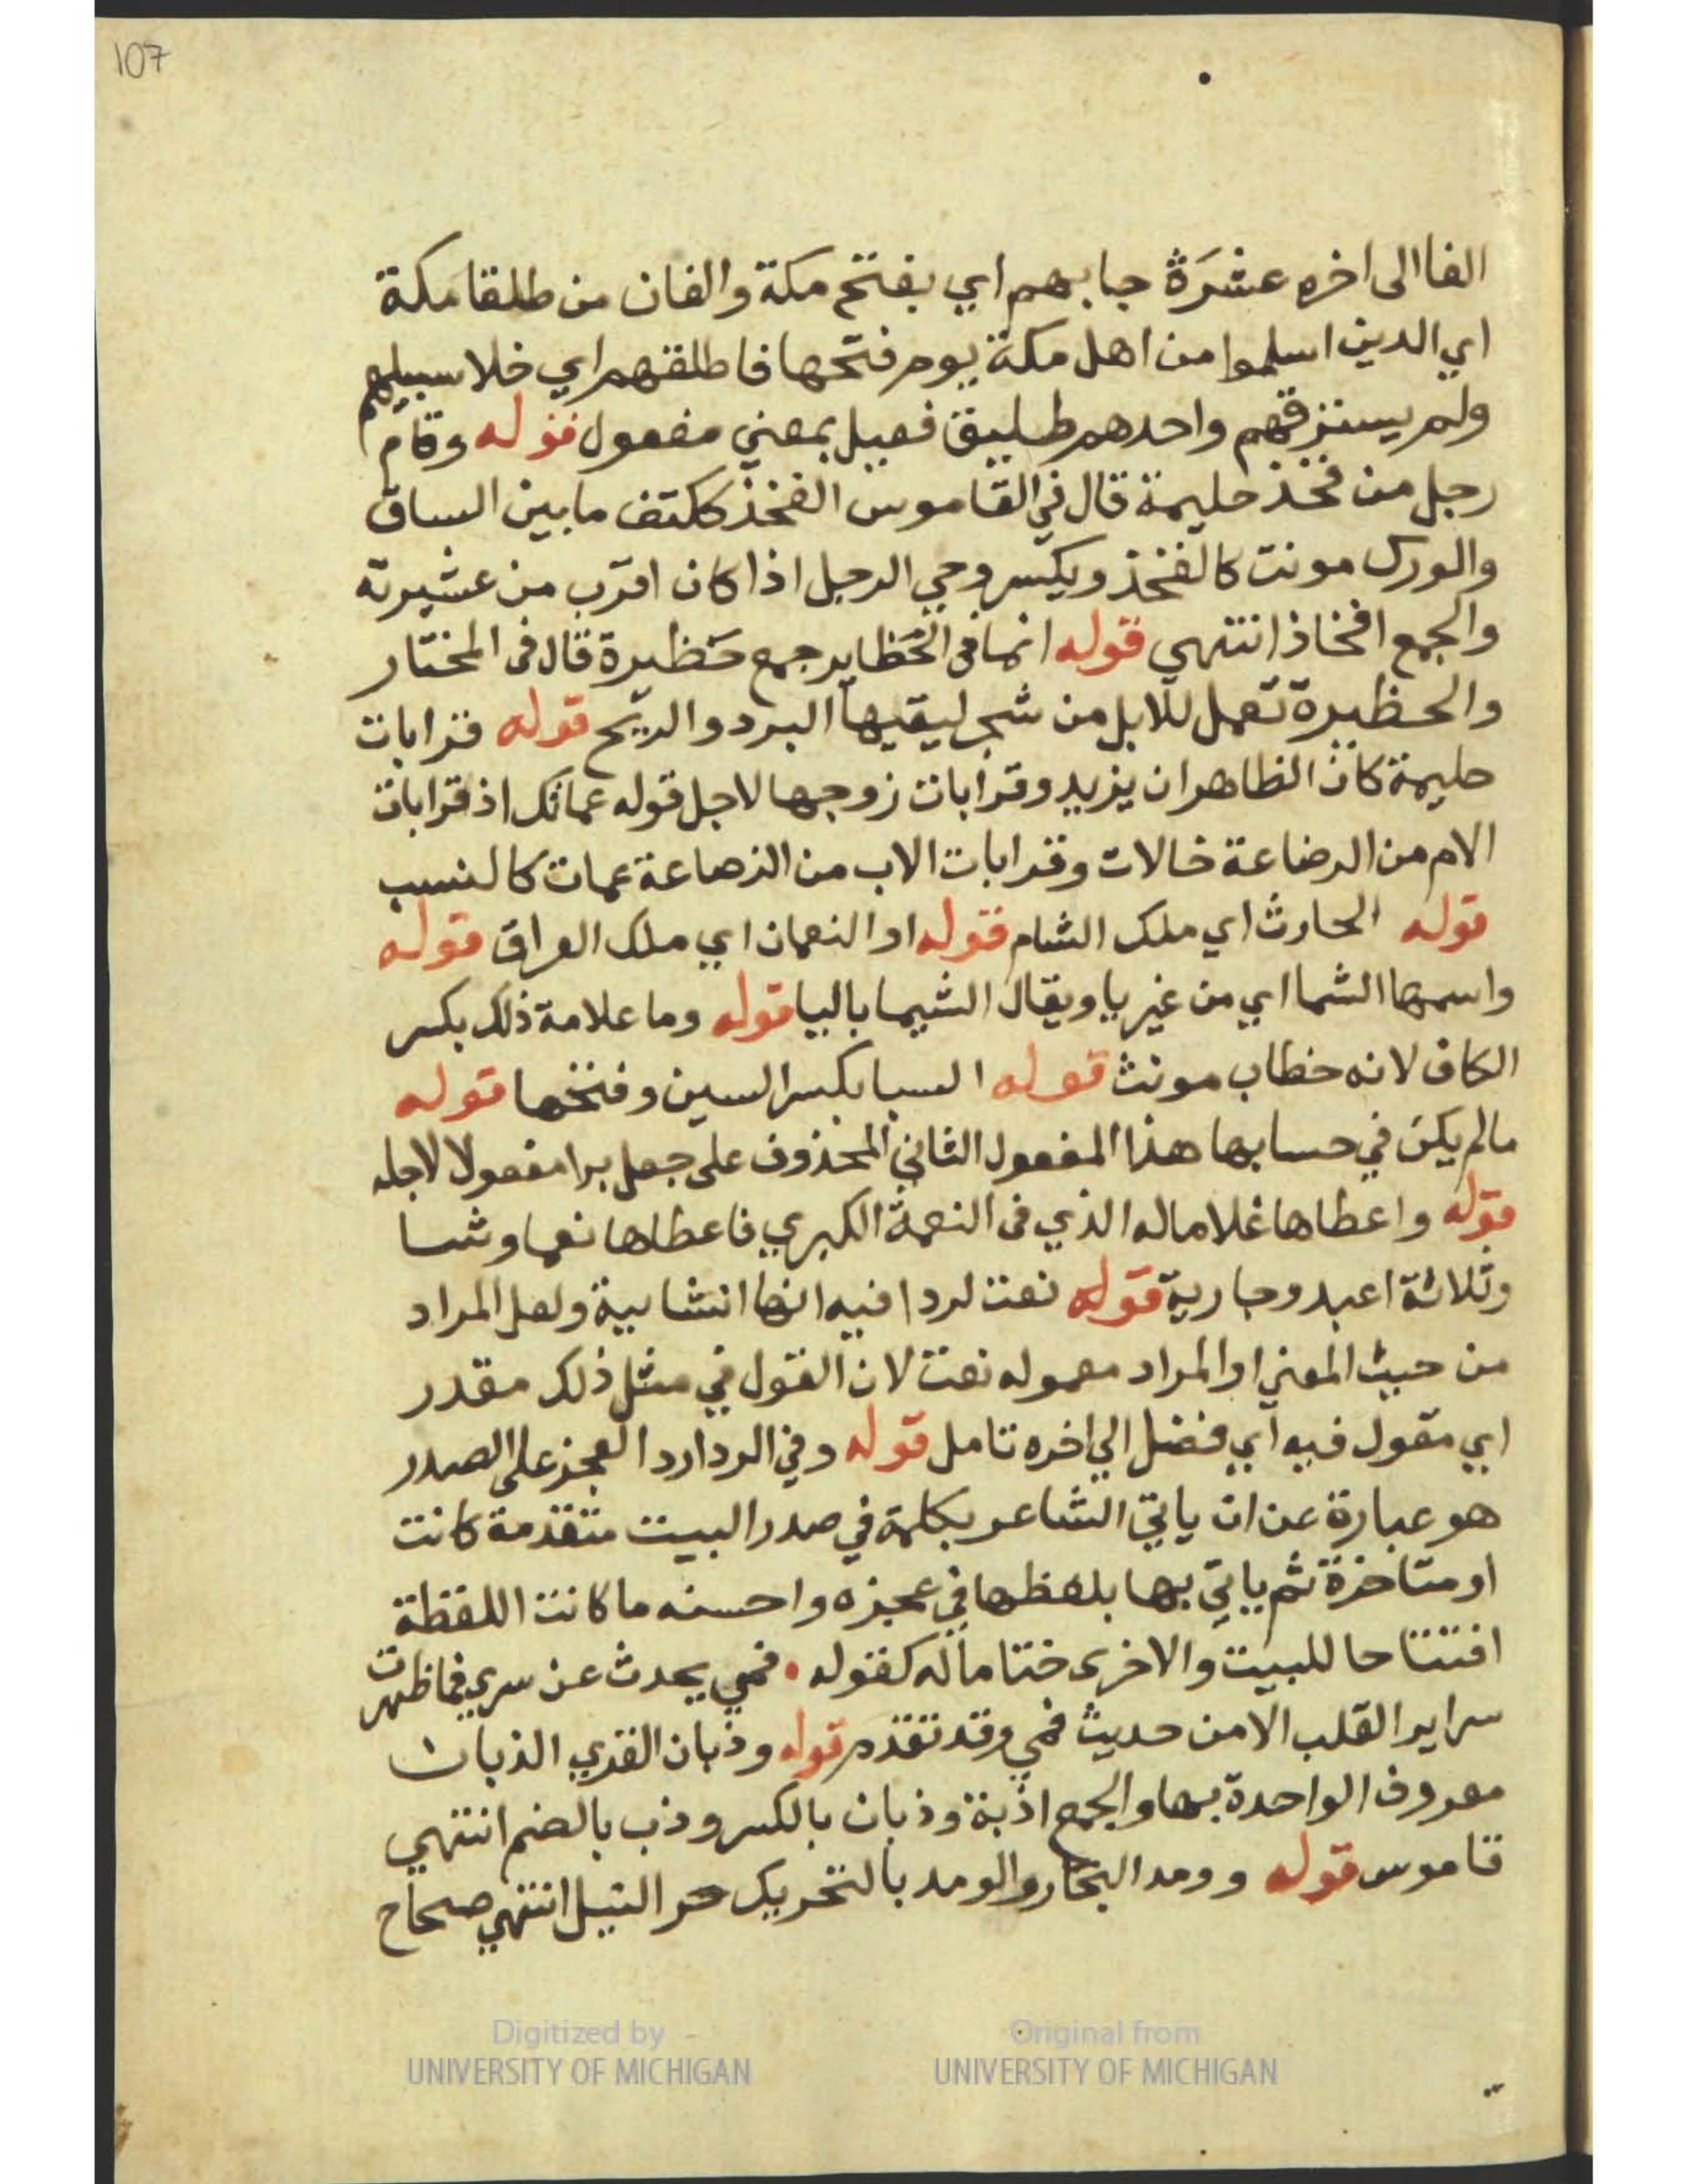 107
الفا الى اخره عشرَة جا بهم اي بفتح مكة والفان من طلقا مكة
اي الدين اسلموا من اهل مكة يوم فتحها فاطلقهم اي خلا سبيلهم
ولم يسترقهم واحدهم طليق فعيل بمعني مفعول قوله وقام
رجل من فخذ حليمة قال في القاموس الفخذ ككتف ما بين الساق
والورك مونث كالفخذ ويكسر وحي الرجل اذا كان اقرب من عشيرته
والجمع افخاذ انتهي قوله انما في الحظاير جمع حظيرة قال في المختار
والحظيرة تعمل للابل من شجر ليقيها البرد والريح قوله قرابات
حليمة كان الظاهر ان يزيد وقرابات زوجها لاجل قوله عماتك اذ قرابات
الام من الرضاعة خالات وقرابات الاب من الرضاعة عمات كالنسب
قوله الحارث اي ملك الشام قوله او النعمان اي ملك العراق قوله
واسمها الشما اي من غير يا ويقال الشيما باليا قوله وما علامة ذلك بكسر
الكاف لانه خطاب مونث قوله السبا بكسر السين وفتحها قوله
مالم يكن في حسابها هذا المفعول الثاني المحذوف على جعل برا مفعولا لاجله
قوله واعطاها غلاما له الذي في النعمة الكبري فاعطاها نعما وشا
وثلاثة اعبد وجارية قوله نعت لردا فيه انها انشايية ولعل المراد
من حيث المعني او المراد معموله نعت لان القول في مثل ذلك مقدر
اي مقول فيه اي فضل الي اخره تامل قوله وفي الردا رد العجز على الصدر
هو عبارة عن ان ياتي الشاعر بكلمة في صدر البيت متقدمة كانت
او متاخرة ثم ياتي بها بلفظها في عجزه واحسنه ما كانت اللفظة
افتتاحا للبيت والاخرى ختاما له كقوله . فمي يحدث عن سري فما ظهرت
سراير القلب الا من حديث فمي وقد تقدم قوله وذبان القري الذباب
معروف الواحدة بها والجمع اذبة وذبان بالكسر وذب بالضم انتهي
قاموس قوله وومد البحار والومد بالتحريك حر الليل انتهي صحاح
Digitized by
UNIVERSITY OF MICHIGAN
Original from
UNIVERSITY OF MICHIGAN